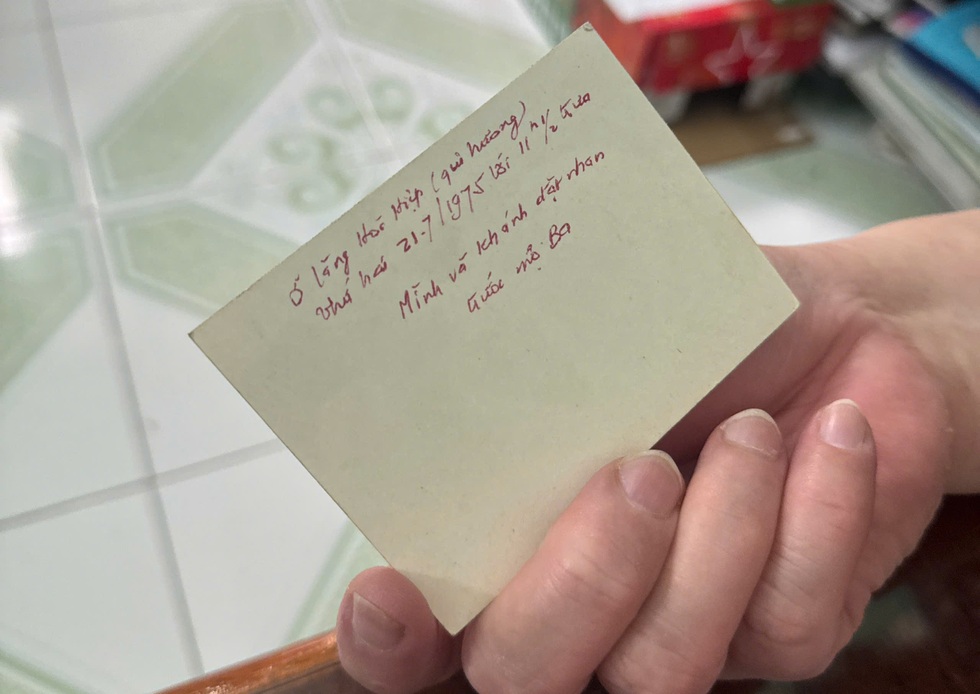 Ở lăng Hoà Hiệp (quê hương)
thứ hai 21-7/1975 lối 11h 1/2 trưa
Minh và Khánh đặt nhan
trước mộ Ba